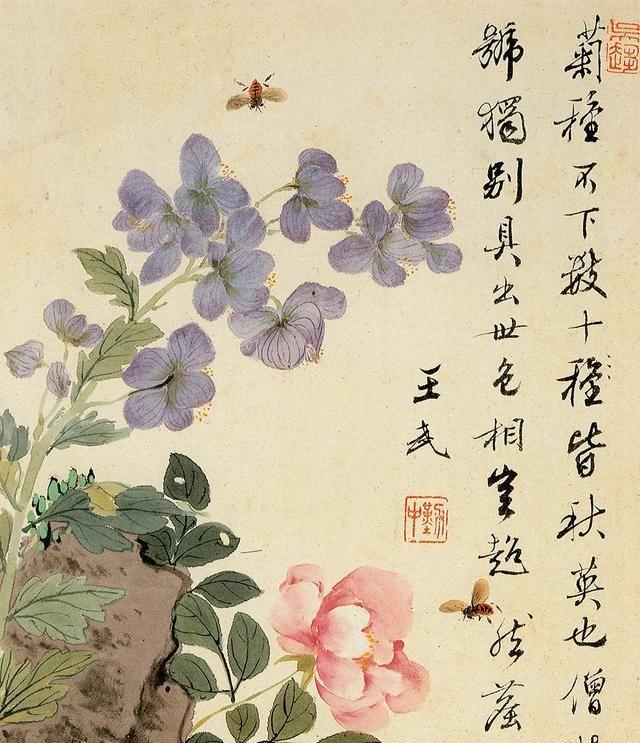 菊種不下數十種皆秋英也僧
號獨別具出世色相超然
王武